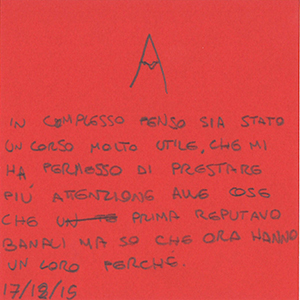 IN COMPLESSO PENSO SIA STATO
UN CORSO MOLTO UTILE, CHE MI
HA PERMESSO DI PRESTARE
PIÙ ATTENZIONE ALLE COSE
CHE PRIMA REPUTAVO
BANALI MA SO CHE ORA HANNO
UN LORO PERCHE.
17/12/15